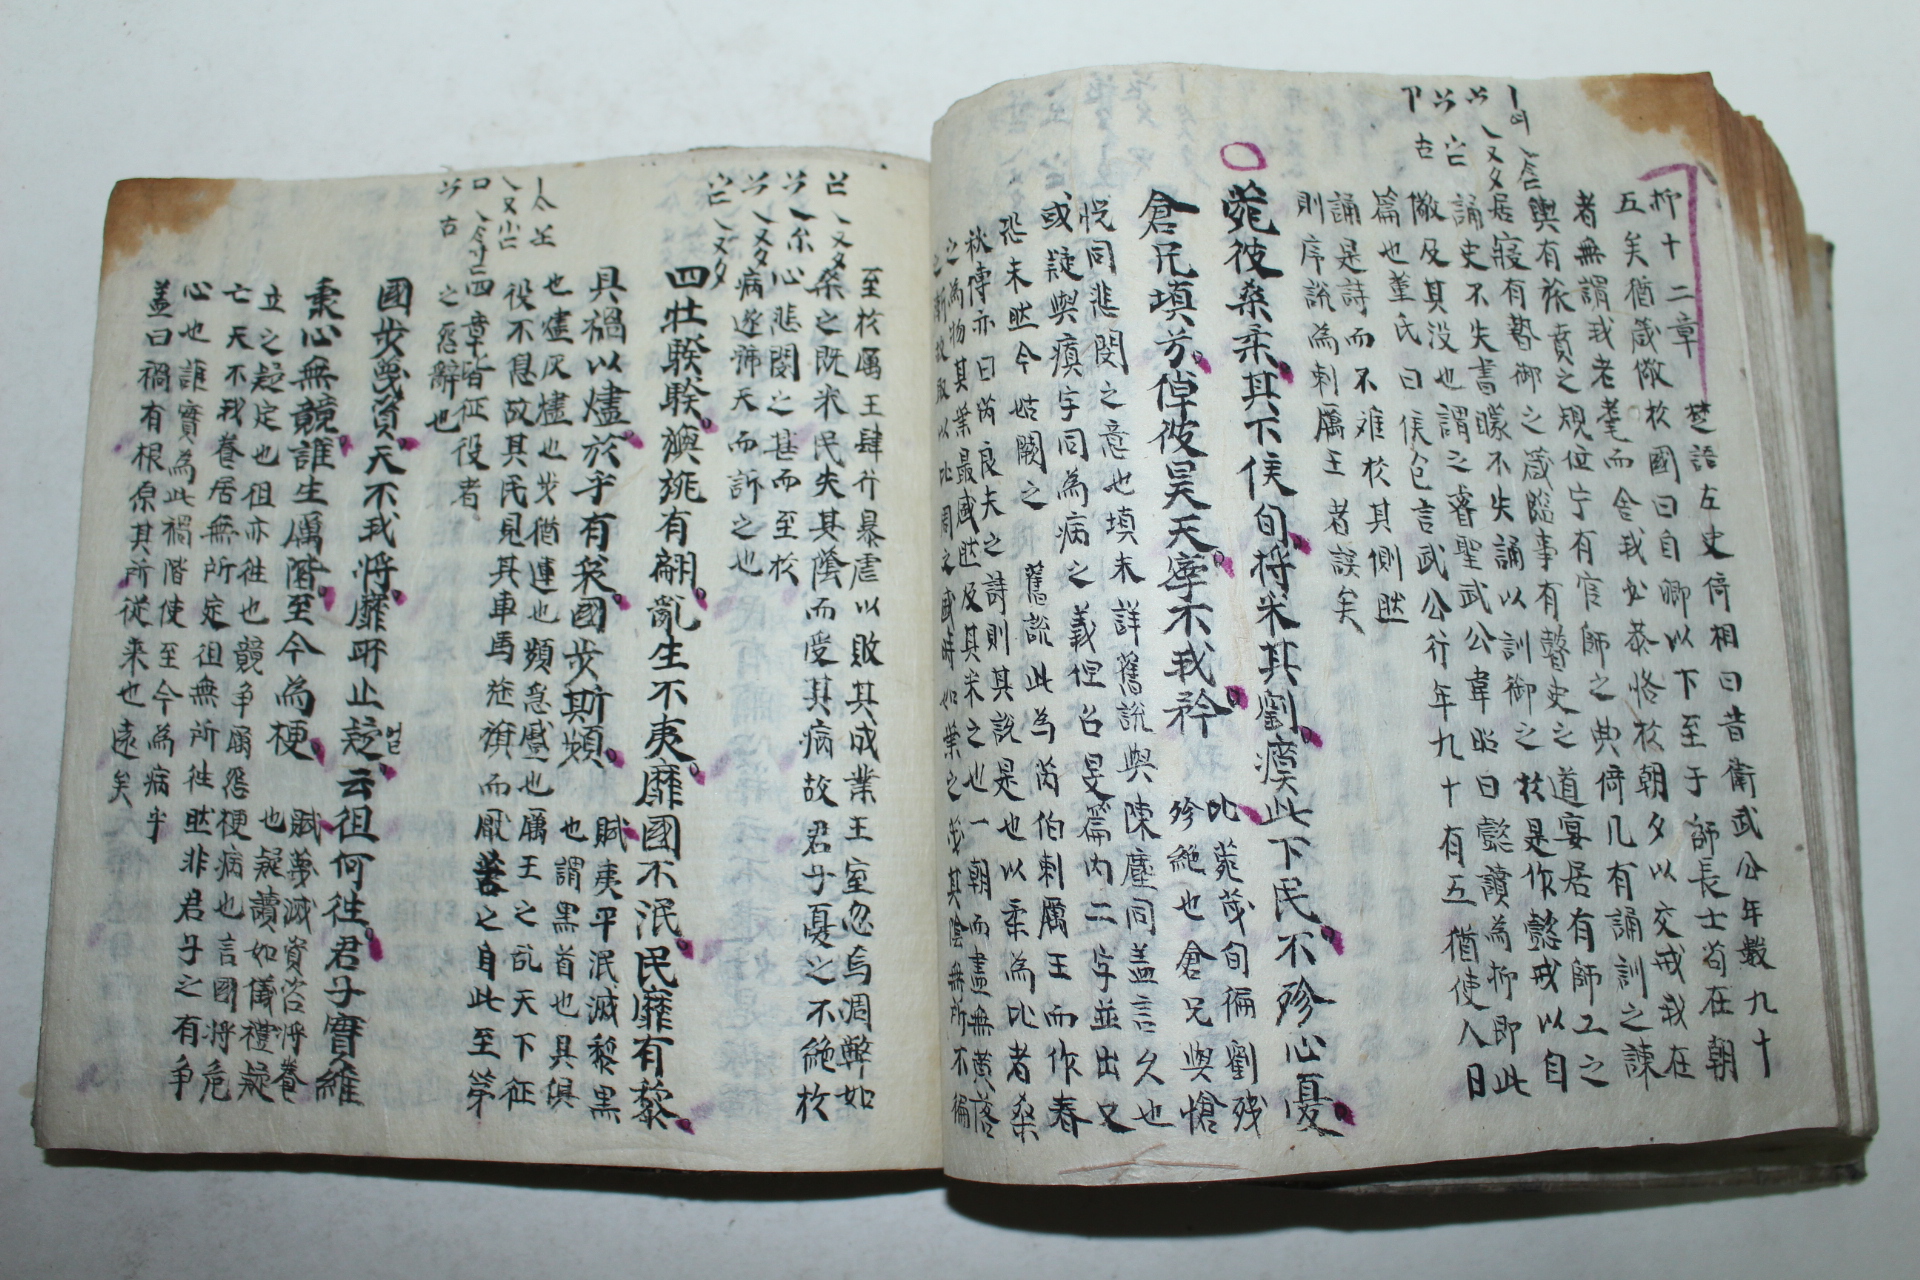 抑十二章 楚語左史倚相曰昔衛武公年數九十
五矣猶箴儆於國曰自卿以下至于師長士苟在朝
者無謂我老耄而舍我必恭恪於朝夕以交戒我在
輿有旅賁之規位宁有官師之典倚几有誦訓之諫
居寢有暬御之箴臨事有瞽史之道宴居有師工之
誦史不失書矇不失誦以訓御之於是作懿戒以自
儆及其没也謂之睿聖武公韋昭曰懿讀為抑即此
篇也董氏曰侯包言武公行年九十有五猶使人日
誦是詩而不離於其側然
則序説為刺厲王者誤矣
菀彼桑柔其下侯旬捋采其劉瘼此下民不殄心憂
倉兄填兮倬彼昊天寧不我矜
比菀茂旬徧劉残
殄絶也倉兄與愴
怳同悲閔之意也填未詳舊説與陳塵同盖言久也
或疑與瘨字同為病之義但召旻篇内二字並出又
恐未然今姑闕之 舊説此為芮伯刺厲王而作春
秋傳亦曰芮良夫之詩則其説是也以桑為比者桑
之為物其葉最盛然及其采之也一朝而盡無黄落
之漸故取以比周之盛時如葉之茂其陰無所不徧
至於厲王肆行暴虐以敗其成業王室忽焉凋弊如
桑之既采民失其蔭而受其病故君子憂之不絶於
心悲閔之甚而至於
病遂號天而訴之也
四牡騤騤旟旐有翩亂生不夷靡國不泯民靡有黎
具禍以燼於乎有哀國步斯頻
賦夷平泯滅黎黑
也謂黑首也具俱
也燼灰燼也步猶運也頻急蹙也厲王之乱天下征
役不息故其民見其車馬旌旗而厭苦之自此至第
四章皆征役者
之怨辭也
國步蔑資天不我將靡所止疑云徂何往君子實維
秉心無競誰生厲階至今為梗
賦蔑滅資咨將養
也疑讀如儀禮疑
立之疑定也徂亦往也競争厲怨梗病也言國将危
亡天不我養居無所定徂無所往然非君子之有争
心也誰實為此禍階使至今為病乎
盖曰禍有根原其所從来也遠矣